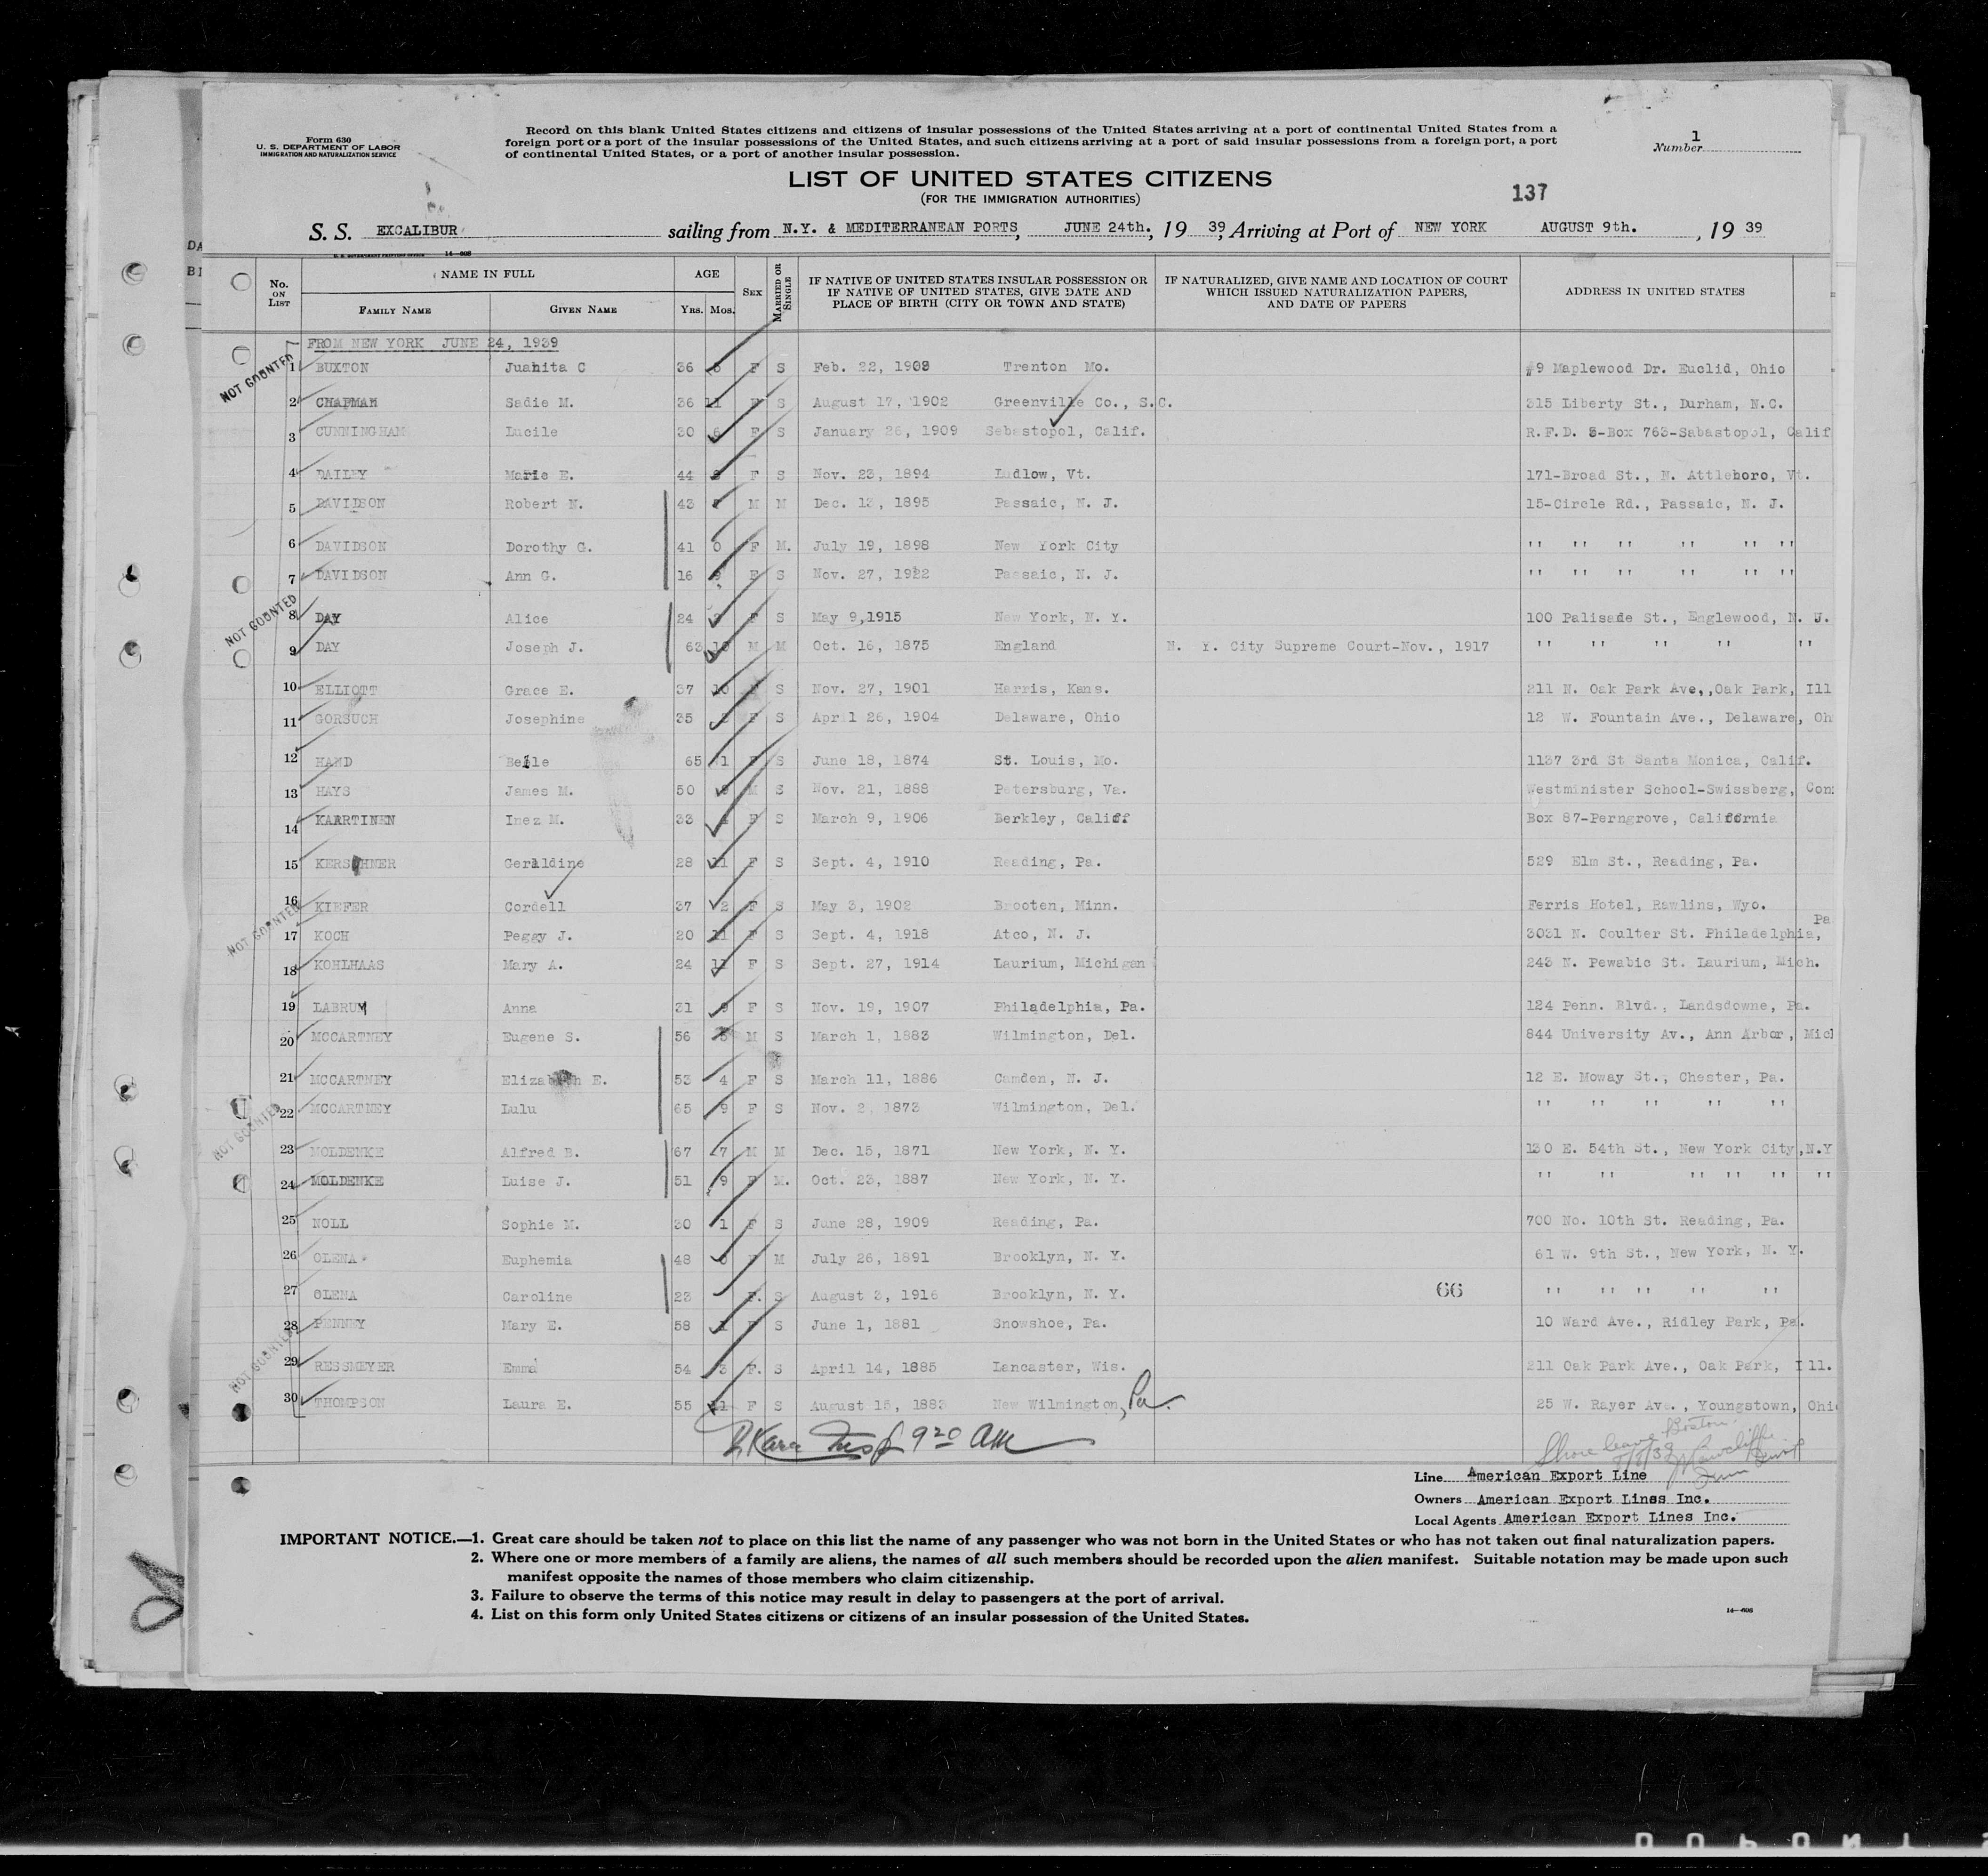 Form 630
U. S. DEPARTMENT OF LABOR
IMMIGRATION AND NATURALIZATION SERVICE
Record on this blank United States citizens and citizens of insular possessions of the United States arriving at a port of continental United States from a
foreign port or a port of the insular possessions of the United States, and such citizens arriving at a port of said insular possessions from a foreign port, a port
of continental United States, or a port of another insular possession.
1
Number
LIST OF UNITED STATES CITIZENS
(FOR THE IMMIGRATION AUTHORITIES)
137
S. S. EXCALIBUR sailing from N.Y. & MEDITERRANEAN PORTS, JUNE 24th., 19 39, Arriving at Port of NEW YORK AUGUST 9th. , 19 39
No. ON LIST NAME IN FULL AGE SEX MARRIED OR SINGLE IF NATIVE OF UNITED STATES INSULAR POSSESSION OR IF NATIVE OF UNITED STATES, GIVE DATE AND PLACE OF BIRTH (CITY OR TOWN AND STATE) IF NATURALIZED, GIVE NAME AND LOCATION OF COURT WHICH ISSUED NATURALIZATION PAPERS, AND DATE OF PAPERS ADDRESS IN UNITED STATES
FAMILY NAME GIVEN NAME YRS. MOS.
FROM NEW YORK JUNE 24, 1939
NOT COUNTED
1 BUXTON Juanita C 36 F S Feb. 22, 1903 Trenton Mo. #9 Maplewood Dr. Euclid, Ohio
2 CHAPMAN Sadie M. 36 11 F S August 17, 1902 Greenville Co., S.C. 315 Liberty St., Durham, N.C.
3 CUNNINGHAM Lucile 30 6 F S January 26, 1909 Sebastopol, Calif. R.F.D. 3-Box 763-Sabastopol, Calif
4 DAILEY Marie E. 44 F S Nov. 23, 1894 Ludlow, Vt. 171-Broad St., N. Attleboro, Vt.
5 DAVIDSON Robert N. 43 M M Dec. 13, 1895 Passaic, N. J. 15-Circle Rd., Passaic, N. J.
6 DAVIDSON Dorothy G. 41 0 F M. July 19, 1898 New York City '' '' '' '' '' ''
7 DAVIDSON Ann G. 16 F S Nov. 27, 1922 Passaic, N. J. '' '' '' '' '' ''
NOT COUNTED
8 DAY Alice 24 F S May 9,1915 New York, N. Y. 100 Palisade St., Englewood, N. J.
9 DAY Joseph J. 63 10 M M Oct. 16, 1875 England N. Y. City Supreme Court-Nov., 1917 '' '' '' '' ''
10 ELLIOTT Grace E. 37 10 F S Nov. 27, 1901 Harris, Kans. 211 N. Oak Park Ave,,Oak Park, Ill
11 GORSUCH Josephine 35 F S April 26, 1904 Delaware, Ohio 12 W. Fountain Ave., Delaware, Oh
12 HAND Belle 65 1 F S June 18, 1874 St. Louis, Mo. 1137 3rd St Santa Monica, Calif.
13 HAYS James M. 50 M S Nov. 21, 1888 Petersburg, Va. Westminister School-Swissberg, Con
14 KAARTINEN Inez M. 33 F S March 9, 1906 Berkley, Califf Box 87-Perngrove, California
15 KERSCHNER Geraldine 28 11 F S Sept. 4, 1910 Reading, Pa. 529 Elm St., Reading, Pa.
16 KIEFER Cordell 37 2 F S May 3, 1902 Brooten, Minn. Ferris Hotel, Rawlins, Wyo.
NOT COUNTED
17 KOCH Peggy J. 20 11 F S Sept. 4, 1918 Atco, N. J. 3031 N. Coulter St. Philadelphia, Pa
18 KOHLHAAS Mary A. 24 11 F S Sept. 27, 1914 Laurium, Michigan 243 N. Pewabic St. Laurium, Mich.
19 LABRUM Anna 31 9 F S Nov. 19, 1907 Philadelphia, Pa. 124 Penn. Blvd., Landsdowne, Pa.
20 MCCARTNEY Eugene S. 56 5 M S March 1, 1883 Wilmington, Del. 844 University Av., Ann Arbor, Mich
21 MCCARTNEY Elizabeth E. 53 4 F S March 11, 1886 Camden, N. J. 12 E. Moway St., Chester, Pa.
22 MCCARTNEY Lulu 65 9 F S Nov. 2, 1873 Wilmington, Del. '' '' '' '' ''
NOT COUNTED
23 MOLDENKE Alfred B. 67 7 M M Dec. 15, 1871 New York, N. Y. 130 E. 54th St., New York City,N.Y
24 MOLDENKE Luise J. 51 9 F M. Oct. 23, 1887 New York, N. Y. '' '' '' '' '' ''
25 NOLL Sophie M. 30 1 F S June 28, 1909 Reading, Pa. 700 No. 10th St. Reading, Pa.
26 OLENA Euphemia 48 0 F M July 26, 1891 Brooklyn, N. Y. 61 W. 9th St., New York, N. Y.
27 OLENA Caroline 23 F. S August 3, 1916 Brooklyn, N. Y. 66 '' '' '' '' ''
28 PENNEY Mary E. 58 1 F S June 1, 1881 Snowshoe, Pa. 10 Ward Ave., Ridley Park, Pa.
NOT COUNTED
29 RESSMEYER Emma 54 3 F. S April 14, 1885 Lancaster, Wis. 211 Oak Park Ave., Oak Park, Ill.
30 THOMPSON Laura E. 55 11 F S August 15, 1883 New Wilmington, Pa. 25 W. Rayer Ave., Youngstown, Ohio
Insp 9 20 AM
Shore leave Boston
Line American Export Line
Owners American Export Lines Inc.
Local Agents American Export Lines Inc.
IMPORTANT NOTICE.—1. Great care should be taken not to place on this list the name of any passenger who was not born in the United States or who has not taken out final naturalization papers.
2. Where one or more members of a family are aliens, the names of all such members should be recorded upon the alien manifest. Suitable notation may be made upon such
manifest opposite the names of those members who claim citizenship.
3. Failure to observe the terms of this notice may result in delay to passengers at the port of arrival.
4. List on this form only United States citizens or citizens of an insular possession of the United States.